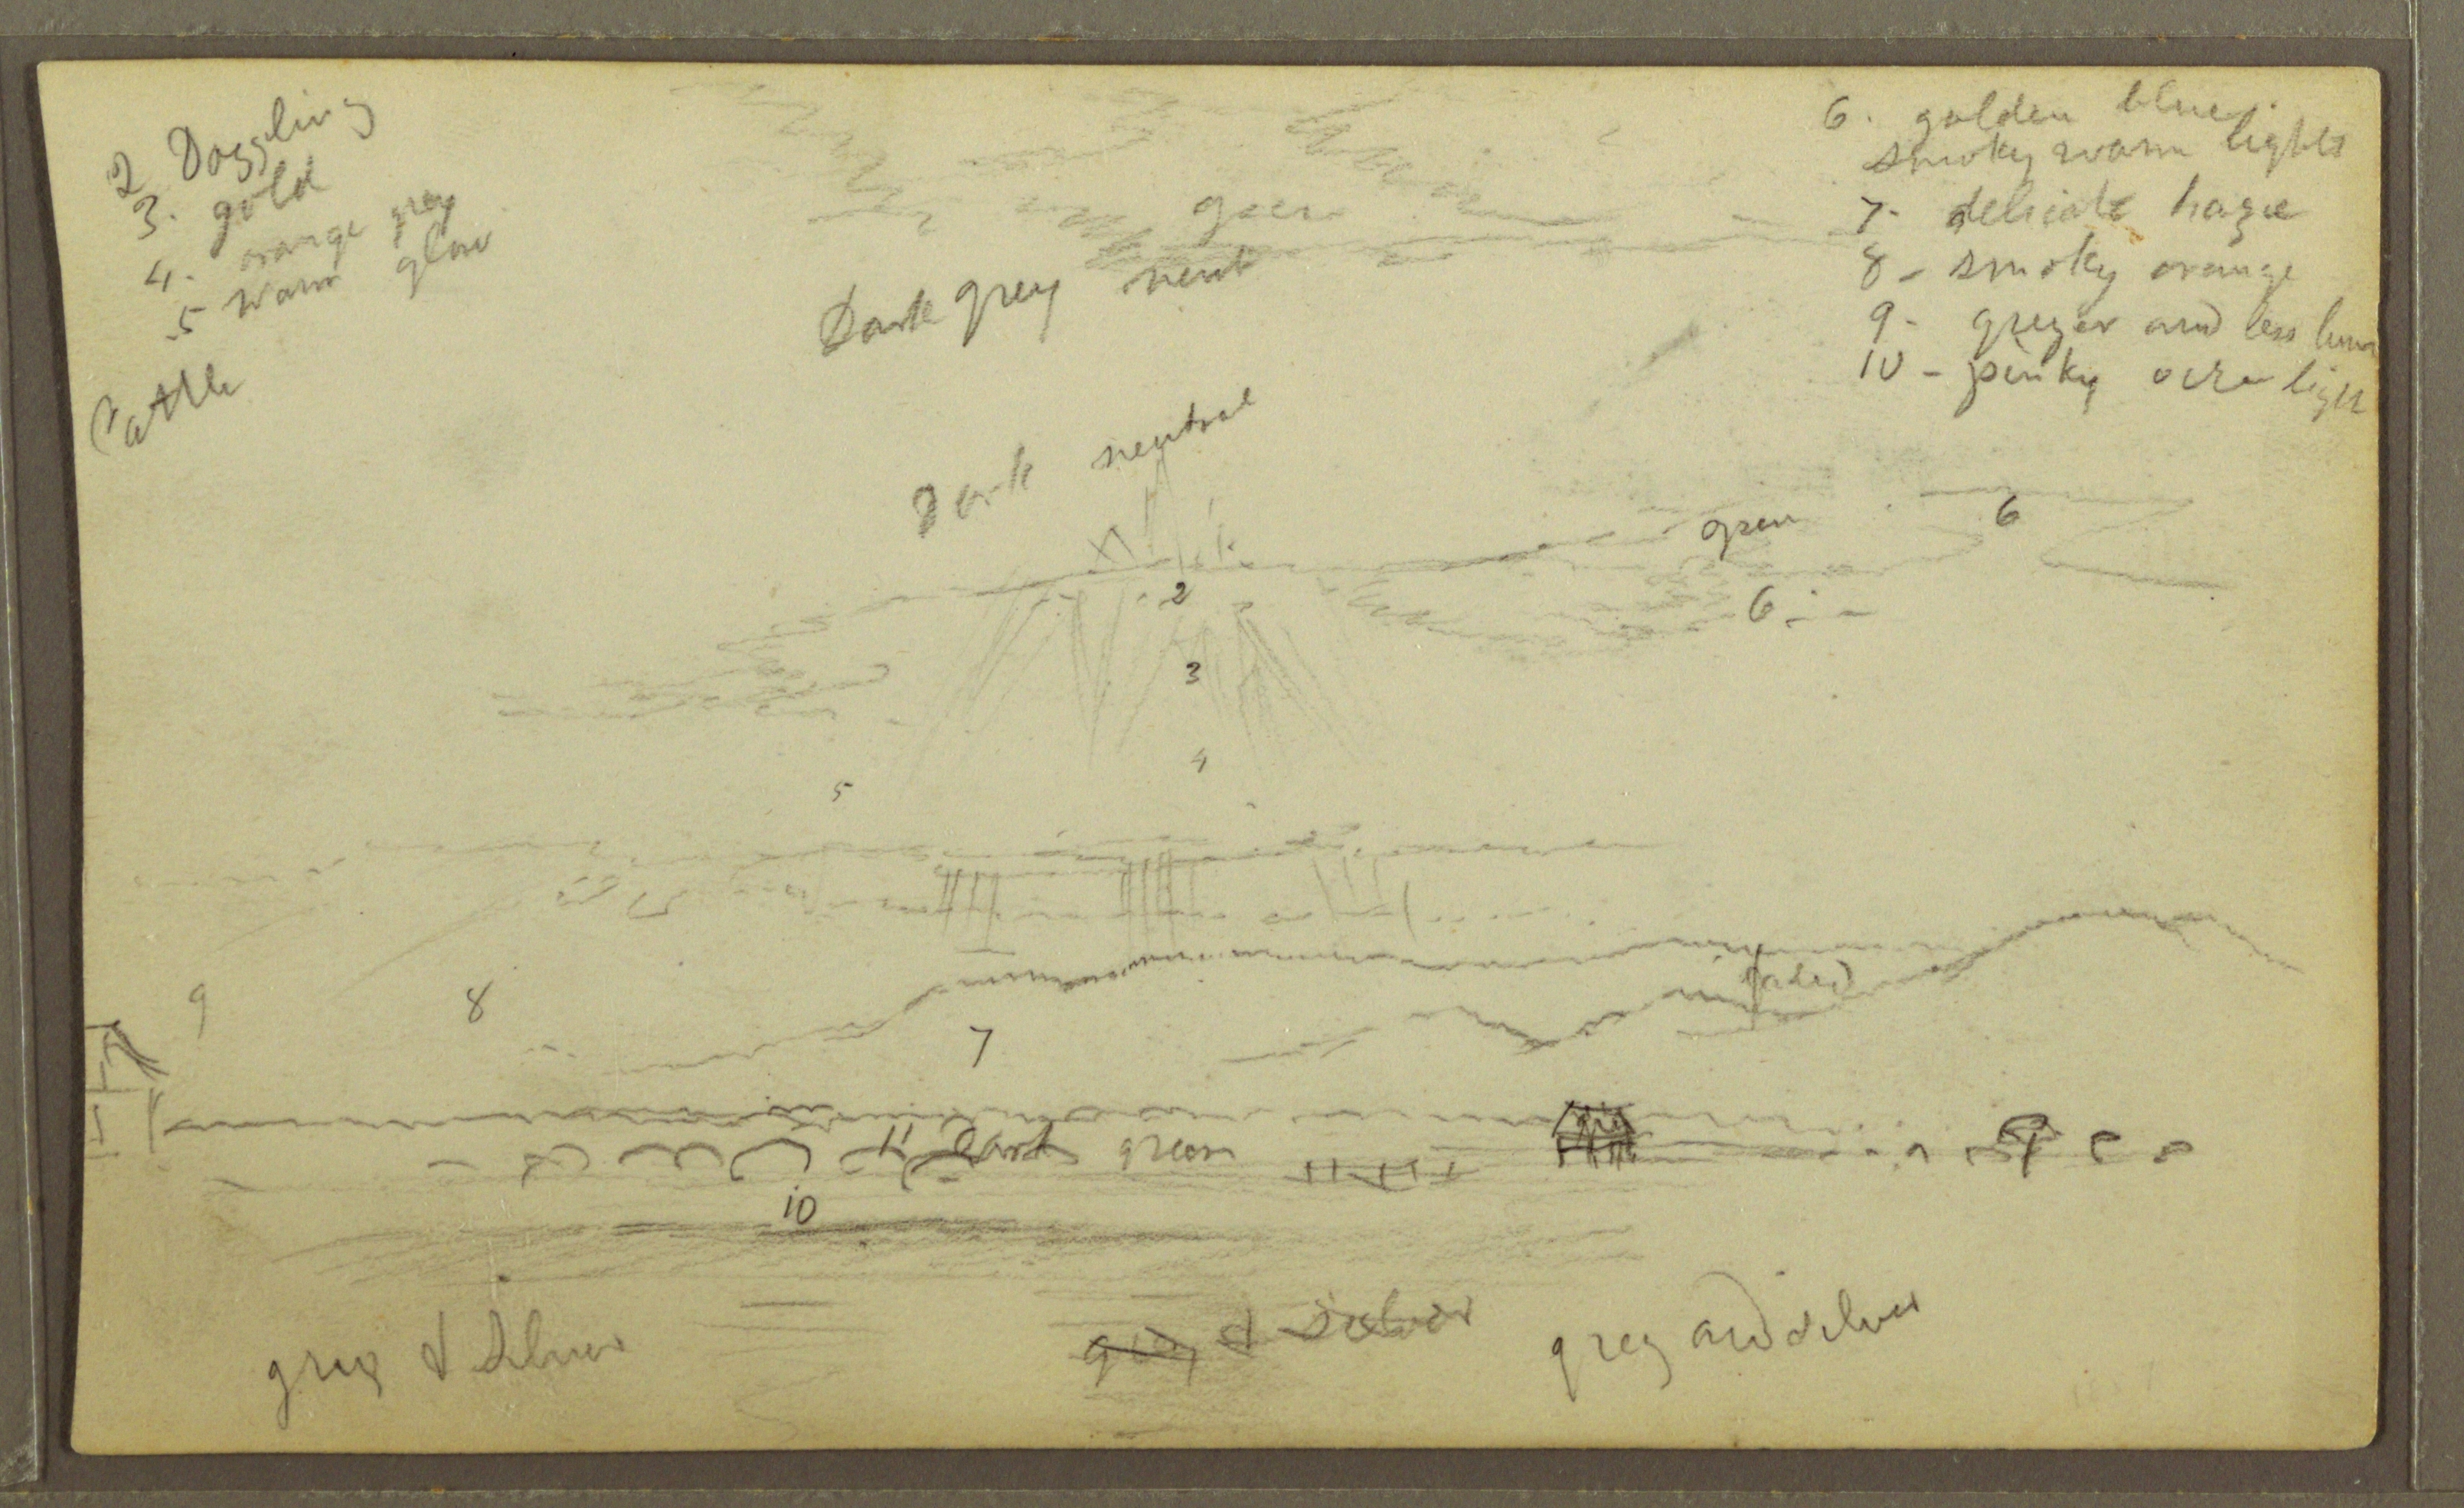 2 Dazzling
3. gold
4. orange grey
5 warm glow
Cattle
6. golden blue.
smoky warm lights
7- delicate haze
8 - smoky orange
9 - greyer and less lum
10 - pinky over light
grey
Dark grey neut
Dark neutral
green
6
2
6
3
4
5
9
8
7
11 dark green
10
grey & silver
grey & silver
grey and silver